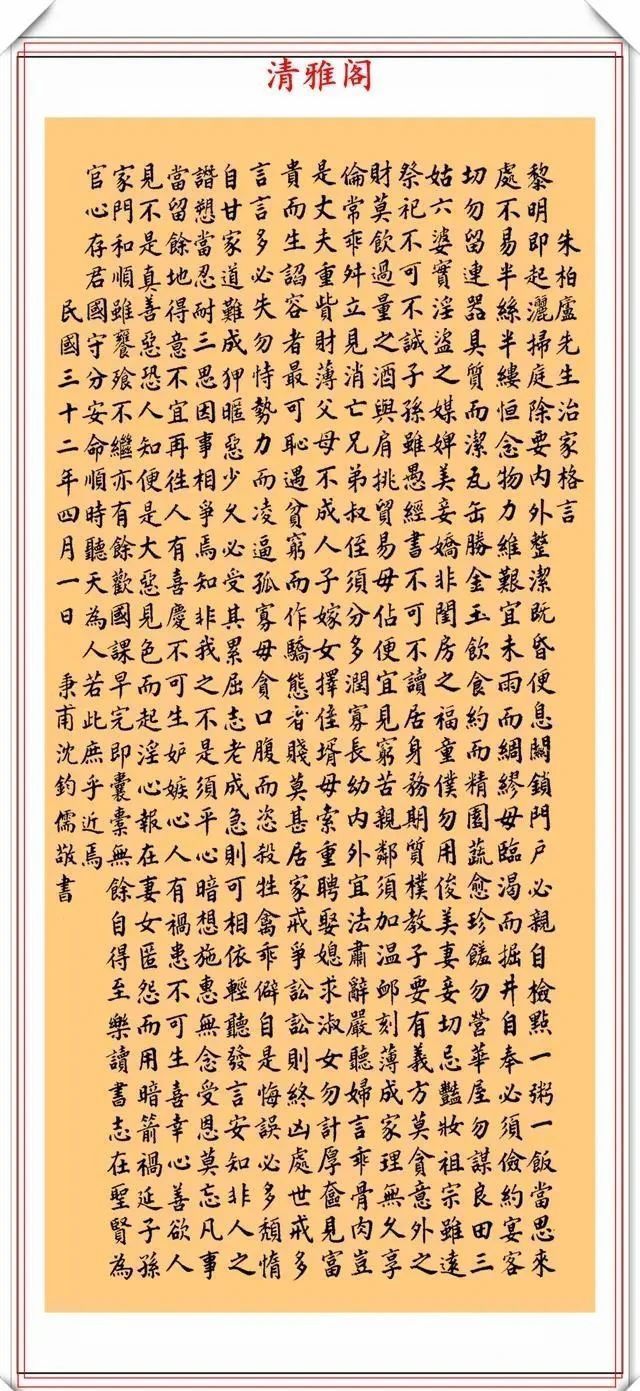 清雅阁
朱柏廬先生治家格言
黎明即起灑掃庭除要內外整潔既昏便息關鎖門戶必親自檢點一粥一飯當思來
處不易半絲半縷恒念物力維艱宜未雨而綢繆毋臨渴而掘井自奉必須儉約宴客
切勿留連器具質而潔瓦缶勝金玉飲食約而精園蔬愈珍饈勿營華屋勿謀良田三
姑六婆實淫盜之媒婢美妾嬌非閨房之福童僕勿用俊美妻妾切忌豔妝祖宗雖遠
祭祀不可不誠子孫雖愚經書不可不讀居身務期質樸教子要有義方莫貪意外之
財莫飲過量之酒與肩挑貿易毋佔便宜見窮苦親鄰須加溫卹刻薄成家理無久享
倫常乖舛立見消亡兄弟叔侄須分多潤寡長幼內外宜法肅辭嚴聽婦言乖骨肉豈
是丈夫重貲財薄父母不成人子嫁女擇佳壻毋索重聘娶媳求淑女勿計厚奩見富
貴而生諂容者最可恥遇貧窮而作驕態者賤莫甚居家戒爭訟訟則終凶處世戒多
言言多必失勿恃勢力而凌逼孤寡毋貪口腹而恣殺牲禽乖僻自是悔誤必多頹惰
自甘家道難成狎暱惡少久必受其累屈志老成急則可相依輕聽發言安知非人之
譖愬當忍耐三思因事相爭焉知非我之不是須平心暗想施惠無念受恩莫忘凡事
當留餘地得意不宜再往人有喜慶不可生妒嫉心人有禍患不可生喜幸心善欲人
見不是真善惡恐人知便是大惡見色而起淫心報在妻女匿怨而用暗箭禍延子孫
家門和順雖饔飧不繼亦有餘歡國課早完即囊橐無餘自得至樂讀書志在聖賢為
官心存君國守分安命順時聽天為人若此庶乎近焉
民國三十二年四月一日 秉甫沈鈞儒敬書